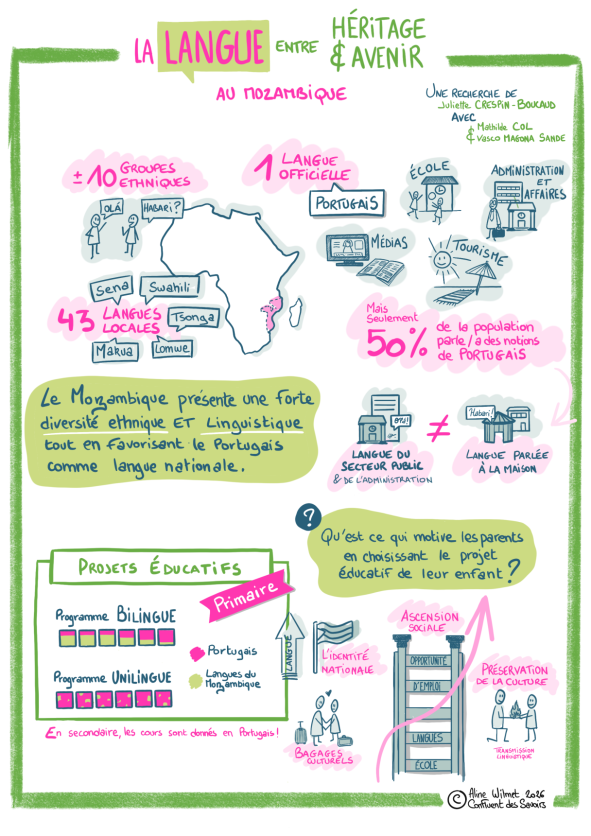 LA LANGUE ENTRE HÉRITAGE & AVENIR
AU MOZAMBIQUE
UNE RECHERCHE DE
Juliette CRESPIN-BOUCAUD
AVEC
Mathilde COL
& Vasco MAGONA SANDE
± 10 GROUPES
ETHNIQUES
OLÁ
HABARI?
1 LANGUE
OFFICIELLE
PORTUGAIS
ÉCOLE
ADMINISTRATION
ET
AFFAIRES
MÉDIAS
TOURISME
Sena
Swahili
43 LANGUES
LOCALES
Tsonga
Makua
Lomwe
Mais
Seulement
50% de la population
parle/a des notions
de PORTUGAIS
Le Morzambique présente une forte
diversité ethnique ET Linguistique
tout en favorisant le Portugais
comme langue nationale.
Habari!
≠
LANGUE DU
SECTEUR PUBLIC
& DE L'ADMINISTRATION
LANGUE PARLÉE
À LA MAISON
?
Qu'est ce qui motive les parents
en choisissant le projet
éducatif de leur enfant?
PROJETS ÉDUCATIFS
Primaire
Programme BILINGUE
Portugais
Langues du
Mozambique
Programme UNILINGUE
En secondaire, les cours sont donnés en Portugais!
LANGUE
L'IDENTITÉ
NATIONALE
BAGAGES
CULTURELS
ASCENSION
SOCIALE
OPPORTUNITÉ
D'EMPLOI
LANGUES
ÉCOLE
PRÉSERVATION
DE LA CULTURE
TRANSMISSION
LINGUISTIQUE
© Aline Wilmet 2026
Confluent des Savoirs